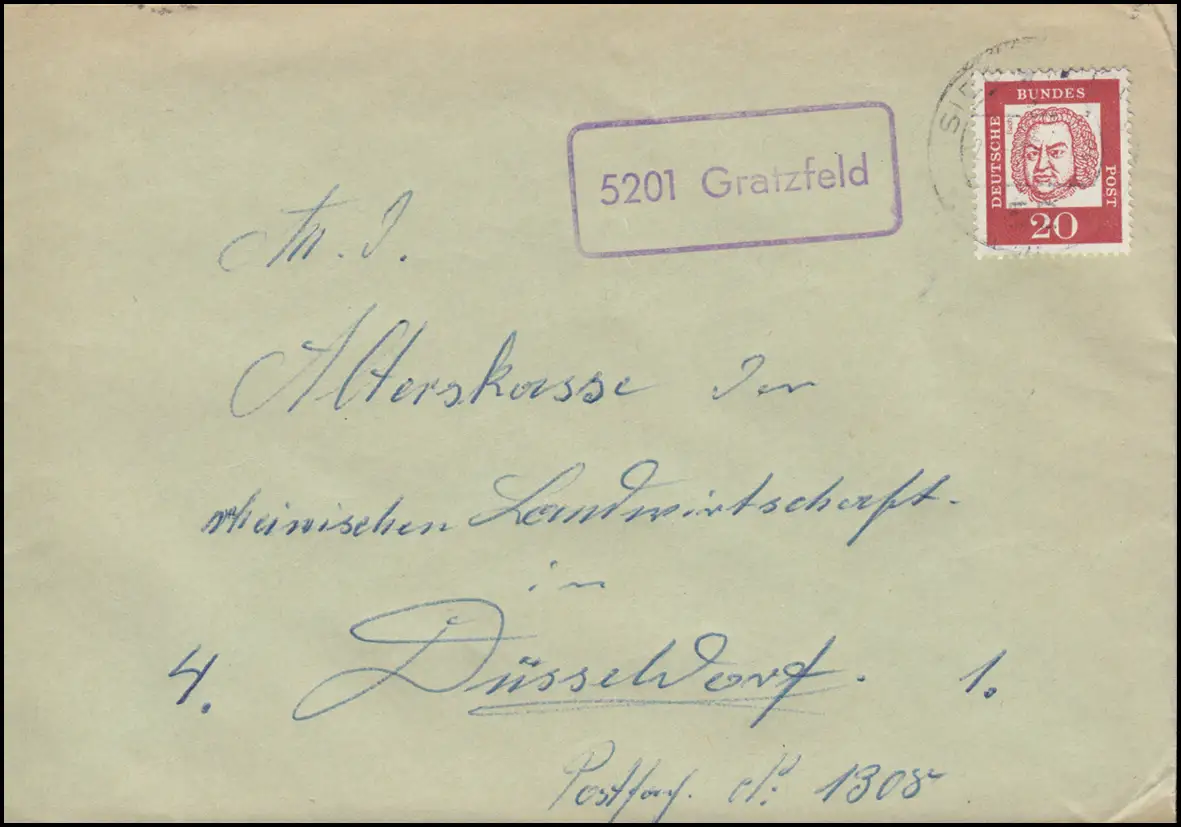 5201 Gratzfeld
DEUTSCHE
BUNDES
POST
20
An. d.
Alterskasse der
rheinischen Landwirtschaft.
in
4. Düsseldorf. 1.
Postfach. 1308